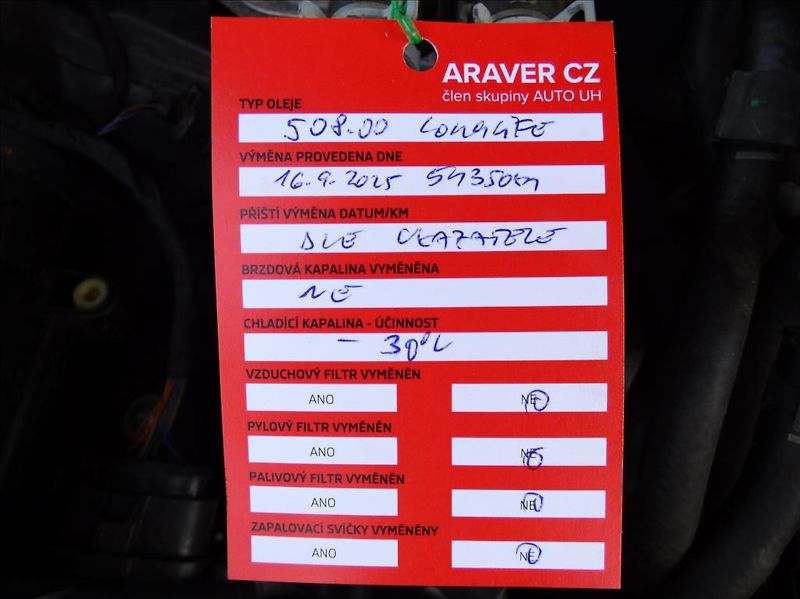 ARAVER CZ
člen skupiny AUTO UH
TYP OLEJE
508.00 LONGLIFE
VÝMĚNA PROVEDENA DNE
16.9.2025 54350km
PŘÍŠTÍ VÝMĚNA DATUM/KM
DLE UKAZATELE
BRZDOVÁ KAPALINA VYMĚNĚNA
NE
CHLADÍCÍ KAPALINA - ÚČINNOST
- 30°C
VZDUCHOVÝ FILTR VYMĚNĚN
ANO NE
PYLOVÝ FILTR VYMĚNĚN
ANO NE
PALIVOVÝ FILTR VYMĚNĚN
ANO NE
ZAPALOVACÍ SVÍČKY VYMĚNĚNY
ANO NE